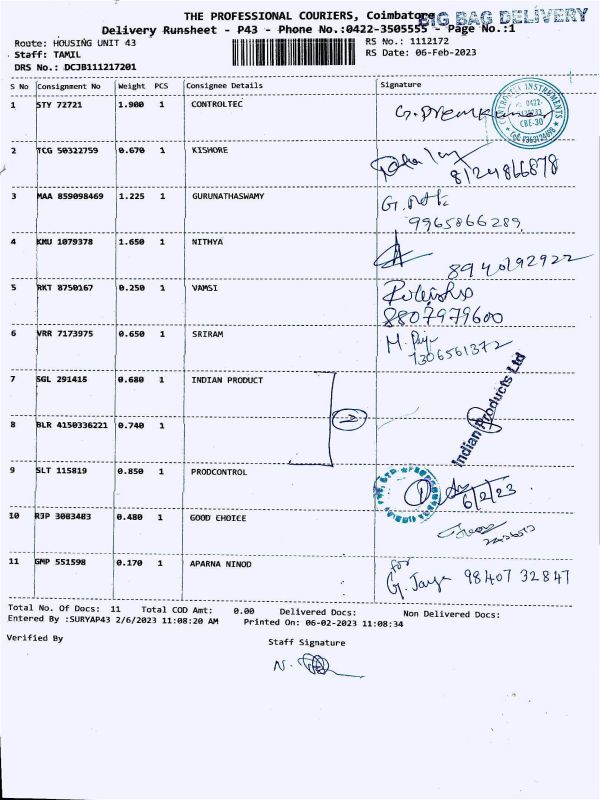 THE PROFESSIONAL COURIERS, Coimbatore
BIG BAG DELIVERY
Delivery Runsheet - P43 - Phone No.:0422-3505555 - Page No.:1
Route: HOUSING UNIT 43
RS No.: 1112172
Staff: TAMIL
RS Date: 06-Feb-2023
DRS No.: DCJB111217201
S No Consignment No Weight PCS Consignee Details Signature
1 STY 72721 1.900 1 CONTROLTEC
CBE-30
2 TCG 50322759 0.670 1 KISHORE
8124866878
3 MAA 859098469 1.225 1 GURUNATHASWAMY
9965866289
4 KMU 1079378 1.650 1 NITHYA
8940192922
5 RKT 8750167 0.250 1 VAMSI
8807979600
6 VRR 7173975 0.650 1 SRIRAM
7306561372
7 SGL 291415 0.680 1 INDIAN PRODUCT
Indian Products Ltd
8 BLR 4150336221 0.740 1
2
9 SLT 115819 0.850 1 PRODCONTROL
1
6/2/23
10 RJP 3083483 0.480 1 GOOD CHOICE
11 GMP 551598 0.170 1 APARNA NINOD
for
G. Jaya 98407 32847
Total No. Of Docs: 11 Total COD Amt: 0.00 Delivered Docs: Non Delivered Docs:
Entered By :SURYAP43 2/6/2023 11:08:20 AM Printed On: 06-02-2023 11:08:34
Verified By
Staff Signature